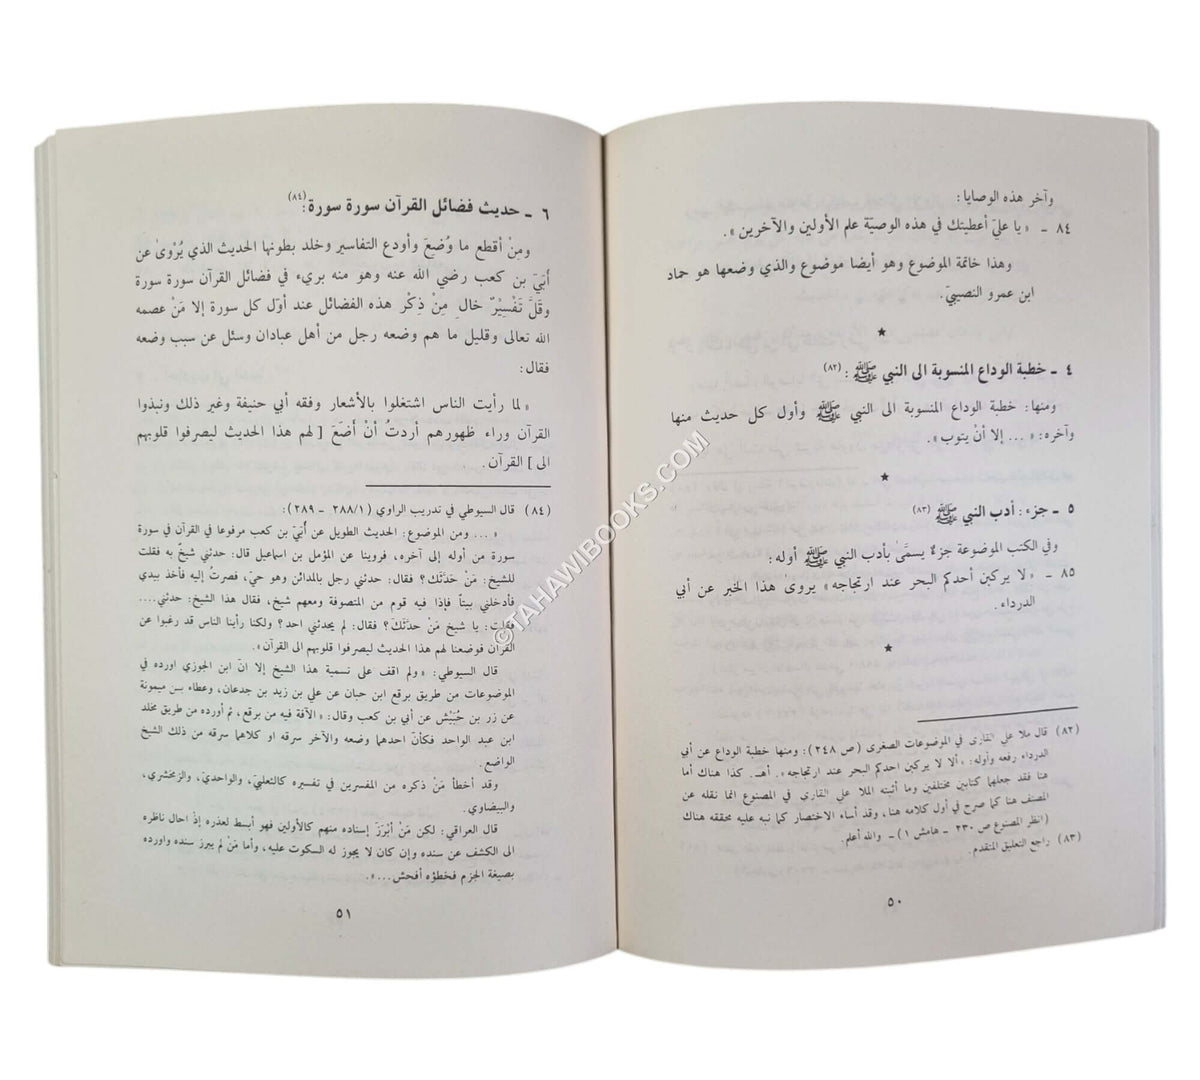 وآخر هذه الوصايا:
٨٤ ـ «يا عليّ أعطيتك في هذه الوصيّة علم الأولين والآخرين».
وهذا خاتمة الموضوع وهو أيضا موضوع والذي وضعها هو حماد
ابن عمرو النصيبيّ.
★
٤ ـ خطبة الوداع المنسوبة الى النبي ﷺ : (٨٢)
ومنها: خطبة الوداع المنسوبة الى النبي ﷺ وأول كل حديث منها
وآخره: «... إلا أنْ يتوب».
★
٥ ـ جزء: أدب النبي ﷺ (٨٣)
وفي الكتب الموضوعة جزءٌ يسمَّىٰ بأدب النبي ﷺ أوله:
٨٥ ـ «لا يركبن أحدكم البحر عند ارتجاجه» يروى هذا الخبر عن أبي
الدرداء.
★
(٨٢) قال ملا علي القاري في الموضوعات الصغرى (ص ٢٤٨): ومنها خطبة الوداع عن أبي
الدرداء رفعه وأوله: «ألا لا يركبن احدكم البحر عند ارتجاجه». أهـ. كذا هناك أما
هنا فقد جعلهما كتابين مختلفين وما أثبته الملا علي القاري في المصنوع انما نقله عن
المصنف هنا كما صرح في أول كلامه هنا، وقد أساء الاختصار كما نبه عليه محققه هناك
(انظر المصنوع ص ٢٣٠ ـ هامش ١) ـ والله أعلم.
(٨٣) راجع التعليق المتقدم.
٥٠
٦ ـ حديث فضائل القرآن سورة سورة: (٨٤)
ومِنْ أقطع ما وُضِعَ وأودع التفاسير وخلد بطونها الحديث الذي يُرْوىٰ عن
أُبَيّ بن كعب رضي الله عنه وهو منه بريء في فضائل القرآن سورة سورة
وقَلَّ تَفْسِيْرٌ خالٍ مِنْ ذِكْر هذه الفضائل عند أوّل كل سورة إلا مَنْ عصمه
الله تعالى وقليل ما هم وضعه رجل من أهل عبادان وسئل عن سبب وضعه
فقال:
« لما رأيت الناس اشتغلوا بالأشعار وفقه أبي حنيفة وغير ذلك ونبذوا
القرآن وراء ظهورهم أردتُ أنْ أضَعَ [ لهم هذا الحديث ليصرفوا قلوبهم
الى ] القرآن.
(٨٤) قال السيوطي في تدريب الراوي (٢٨٨/١ ـ ٢٨٩):
« ... ومن الموضوع: الحديث الطويل عن أُبيّ بن كعب مرفوعا في القرآن في سورة
سورة من أوله إلى آخره، فروينا عن المؤمل بن اسماعيل قال: حدثني شيخٌ به فقلت
للشيخ: مَنْ حَدَّثَك؟ فقال: حدثني رجل بالمدائن وهو حيّ، فصرتُ إليه فأخذ بيدي
فأدخلني بيتاً فإذا فيه قوم من المتصوفة ومعهم شيخ، فقال هذا الشيخ: حدثني....
فقلت: يا شيخ مَنْ حدثَكَ؟ فقال: لم يحدثني احد؟ ولكنا رأينا الناس قد رغبوا عن
القرآن فوضعنا لهم هذا الحديث ليصرفوا قلوبهم الى القرآن».
قال السيوطي: «ولم اقف على تسمية هذا الشيخ إلا انّ ابن الجوزي اورده في
الموضوعات من طريق بزقع ابن حبان عن علي بن زيد بن جدعان، وعطاء بن ميمونة
عن زر بن حُبَيْش عن أبي بن كعب وقال: «الآفة فيه من بزقع، ثم أورده من طريق مخلد
ابن عبد الواحد فكأنّ احدهما وضعه والآخر سرقه او كلاهما سرقه من ذلك الشيخ
الواضع.
وقد أخطأ مَنْ ذكره من المفسرين في تفسيره كالثعلبيّ، والواحديّ، والزمخشري،
والبيضاوي.
قال العراقي: لكن مَنْ أبْرَزَ إسناده منهم كالأولين فهو أبسط لعذره إذْ احال ناظره
الى الكشف عن سنده وإن كان لا يجوز له السكوت عليه، وأما مَنْ لم يبرز سنده واورده
بصيغة الجزم فخطؤه أفحش...».
٥١
©TAHAWIBOOKS.COM